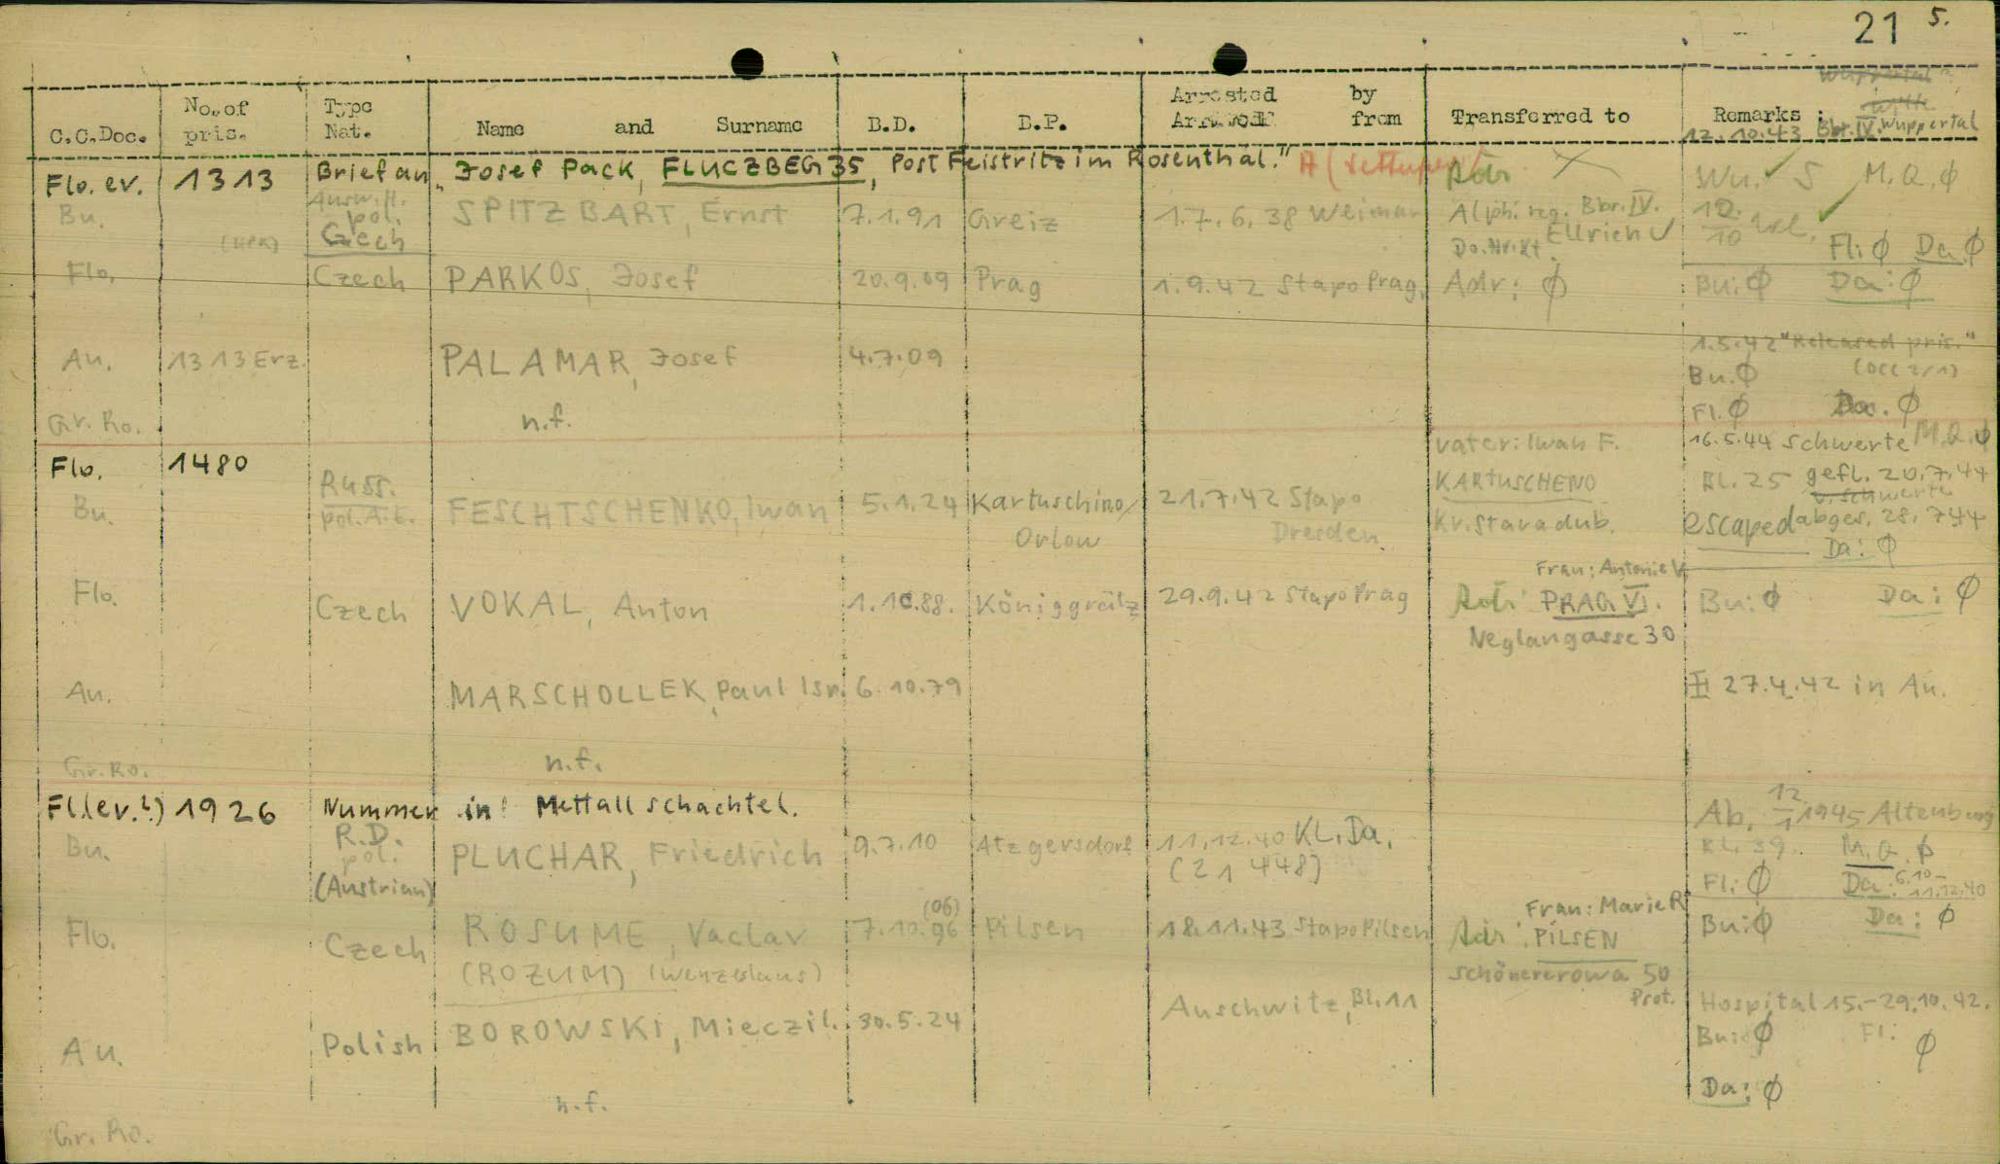 21 5.
C.C.Doc. No. of pris. Type Nat. Name and Surname B.D. B.P. Arrested by from Transferred to Remarks :
12.10.43 Bbr. IV. Wuppertal
Flo. ev. 1313 Brief an „Josef Pack, FLUCZBEG 35, Post Feistritz im Rosenthal."
Adr Wu. S M.Q. Ø
Bu. pol. Czech SPITZBART, Ernst 7.1.91 Greiz 1.7.6.38 Weimar Alph. reg. Bbr. IV. Ellrich
12./10
Fl: Ø Da Ø
Flo. Czech PARKOS, Josef 20.9.09 Prag 1.9.42 Stapo Prag. Adr: Ø Bu: Ø Da: Ø
1.5.42 "Released pris."
Au. 1313 Erz. PALAMAR, Josef 4.7.09 Bu. Ø
Fl. Ø Da. Ø
Gr. Ro. n.f.
Vater: Iwan F. 16.5.44 Schwerte M.Q. Ø
Flo. 1480 KARTUSCHENO Bl. 25 gefl. 20.7.44
v. Schwerte
Bu. Russ. pol. FESCHTSCHENKO, Iwan 5.1.24 Kartuschino/ Orlow 21.7.42 Stapo Dresden. Kr. Staradub. escaped abges. 28.7.44
Da: Ø
Frau: Antonie V.
Flo. Czech VOKAL, Anton 1.10.88. Königgrätz 29.9.42 Stapo Prag Adr PRAG VI. Bu: Ø Da: Ø
Neglangasse 30
Au. MARSCHOLLEK, Paul Isr. 6.10.79 27.4.42 in Au.
Gr. Ro. n.f.
Fl. (ev.?) 1926 Nummer in Mettallschachtel. Ab. 12/1 1945 Altenburg
Bu. R.D. pol. (Austrian) PLUCHAR, Friedrich 9.7.10 Atzgersdorf 11.12.40 KL. Da. (21448) Bl. 39. M.Q. Ø
Fl: Ø Da: 6.10–11.12.40
Frau: Marie R.
Flo. Czech ROSUME, Vaclav 7.10.96 (06) Pilsen 18.11.43 Stapo Pilsen Adr. PILSEN Bu: Ø Da: Ø
(ROZUM) (Wenzeslaus) Schönererowa 50
Prot.
Auschwitz, Bl. 11 Hospital 15.–29.10.42.
Au. Polish BOROWSKI, Mieczil. 30.5.24 Bu: Ø Fl: Ø
Da: Ø
n.f.
Gr. Ro.